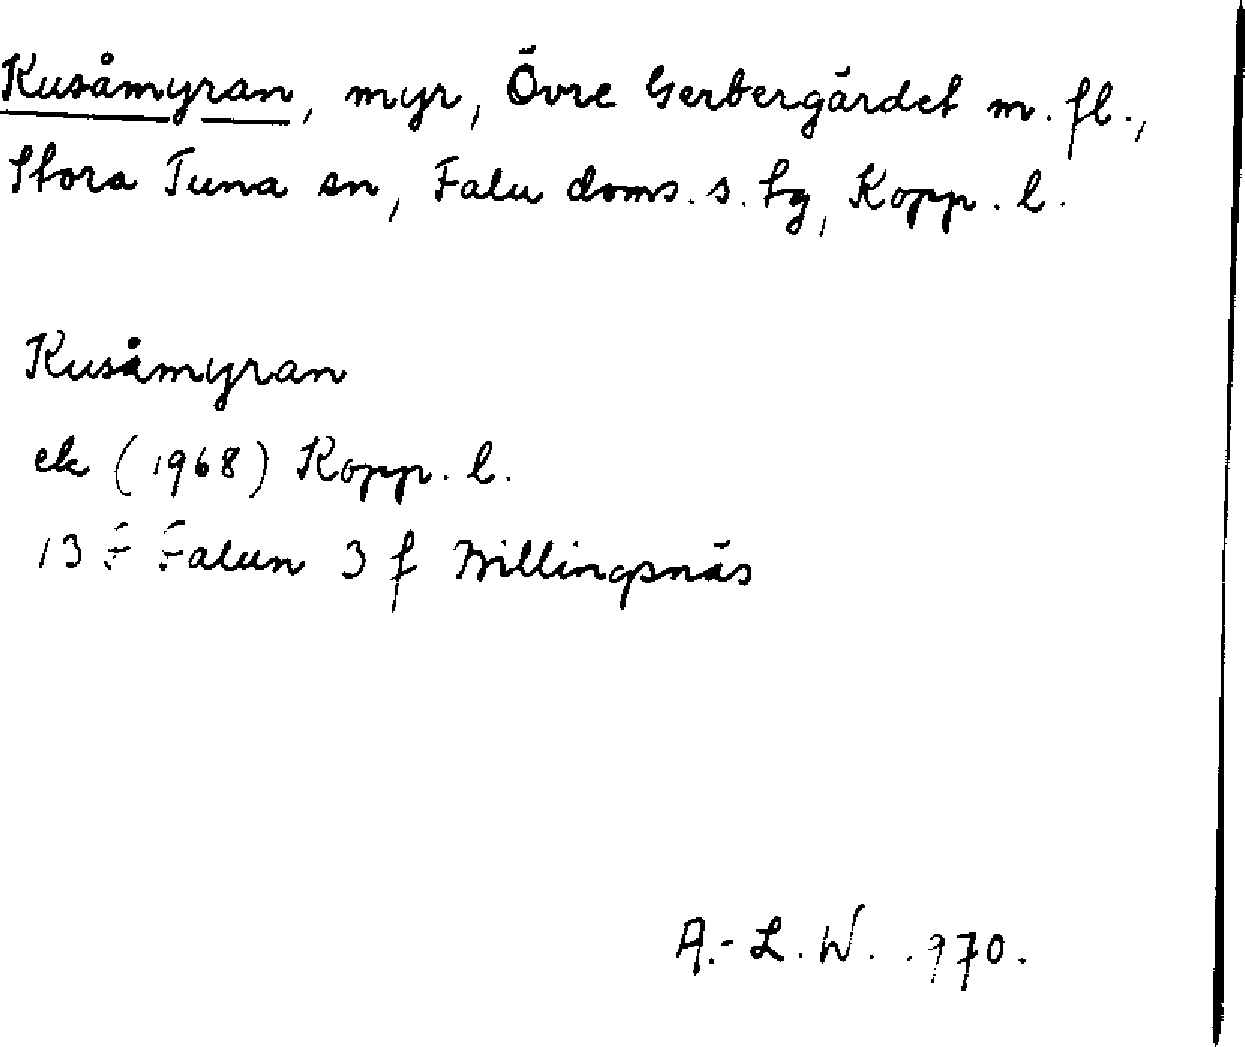 Kusåmyran, myr, Övre Gerbergärdet m. fl.,
Stora Tuna sn, Falu doms. s. tg, Kopp. l.
Kusåmyran
ek (1968) Kopp. l.
13 F Falun 3 f Millingsnäs
A.-L. W. 1970.